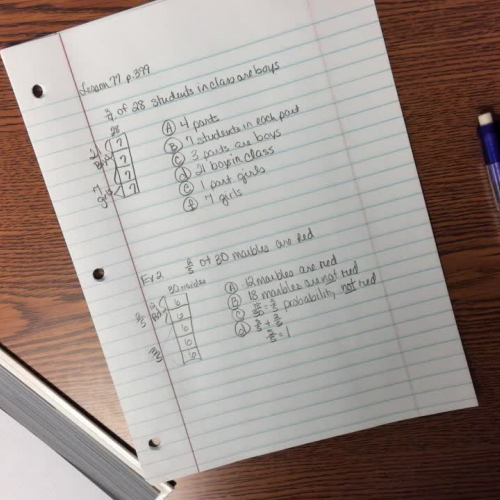 Lesson 77 p.399
3/4 of 28 students in class are boys
28
7
7
7
7
(A) 4 parts
(B) 7 students in each part
(C) 3 parts are boys
(d) 21 boys in class
(e) 1 part girls
(f) 7 girls
Ex 2 2/5 of 30 marbles are Red
30 marbles
6
6
6
6
6
2/5 Red
3/5
(A) 12 marbles are red
(B) 18 marbles are not red
(C) probability, not red
(d)